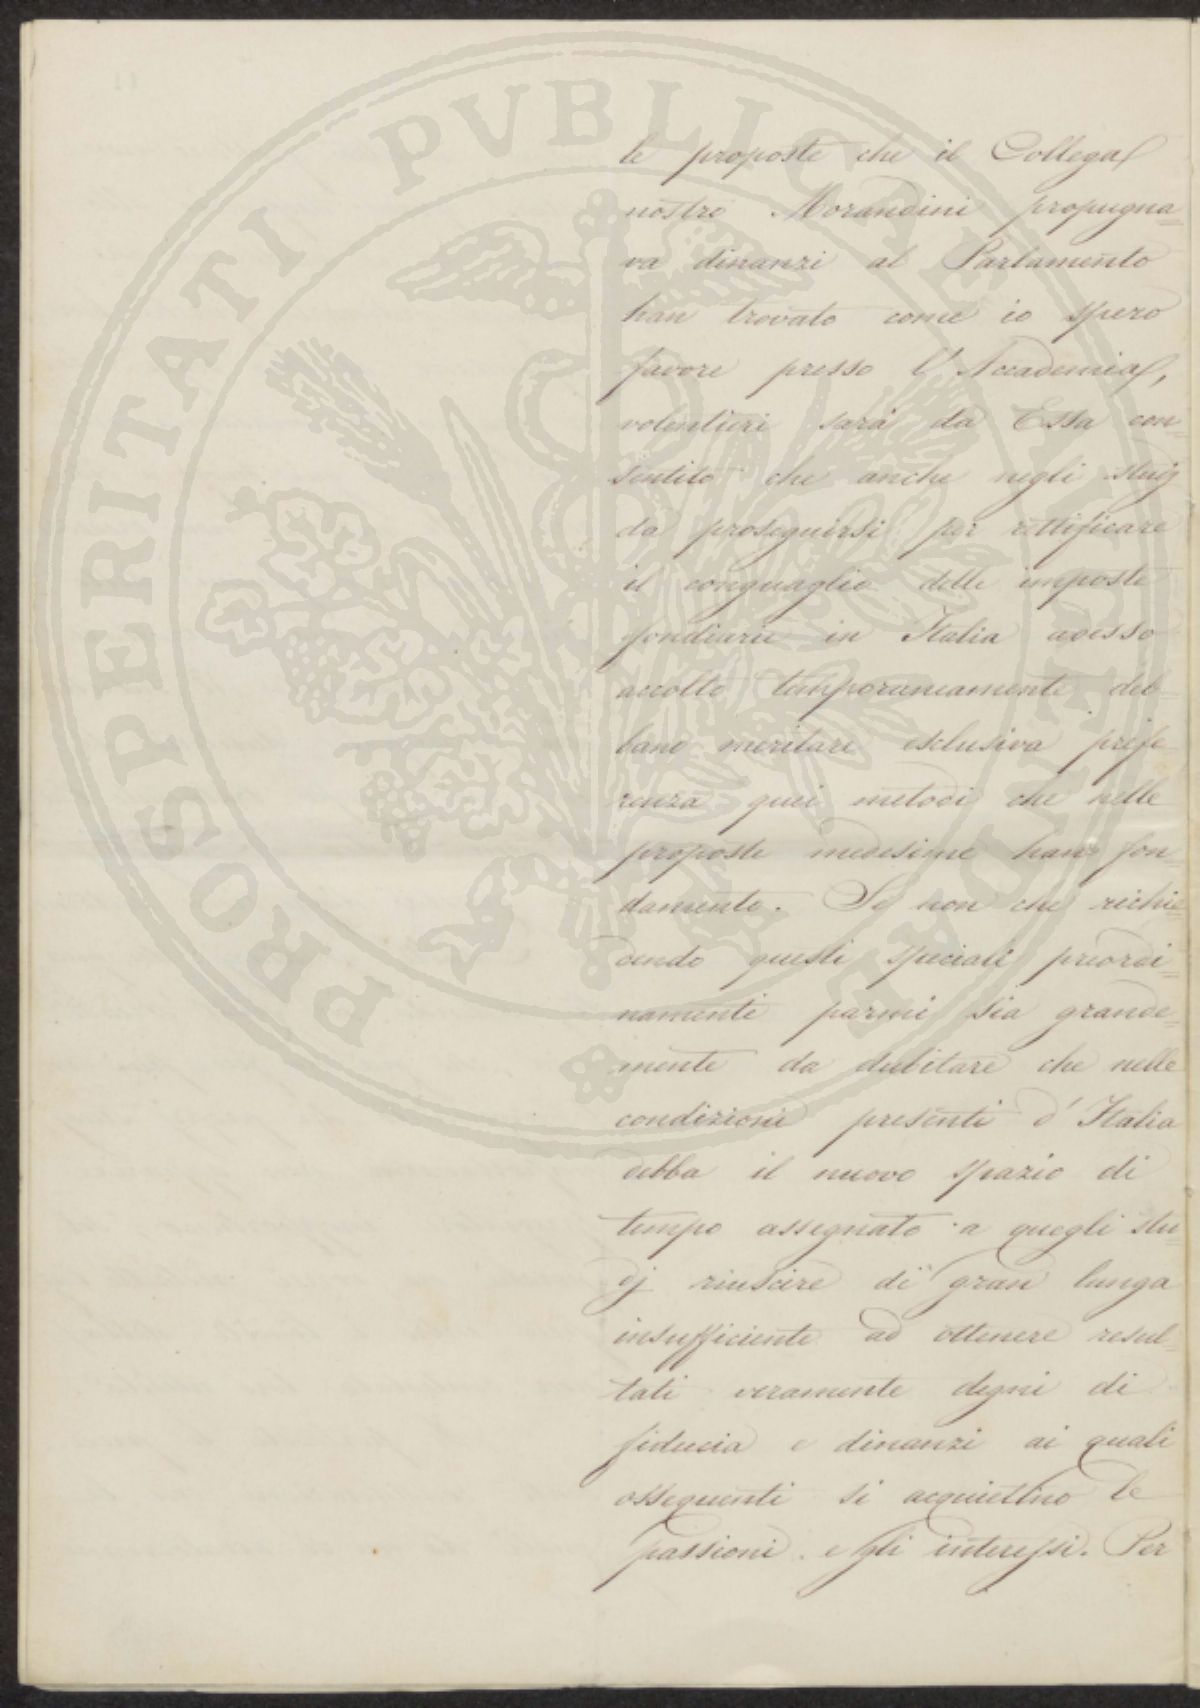 PROSPERITATI PVBLICAE AVGENDAE
le proposte che il Collega
nostro Morandini propugna=
va dinanzi al Parlamento
han trovato come io spero
favore presso l'Accademia,
volentieri sarà da Essa con=
sentito che anche negli studj
da proseguirsi per rettificare
il conguaglio delle imposte
fondiarie in Italia adesso
accolto temporaneamente deb=
bano meritare esclusiva prefe=
renza quei metodi che nelle
proposte medesime han fon=
damento. Se non che richie=
dendo questi speciali preordi=
namenti parmi sia grande=
mente da dubitare che nelle
condizioni presenti d'Italia
debba il nuovo spazio di
tempo assegnato a quegli stu=
dj riuscire di gran lunga
insufficiente ad ottenere resul=
tati veramente degni di
fiducia e dinanzi ai quali
ossequenti si acquietino le
passioni e gli interessi. Per